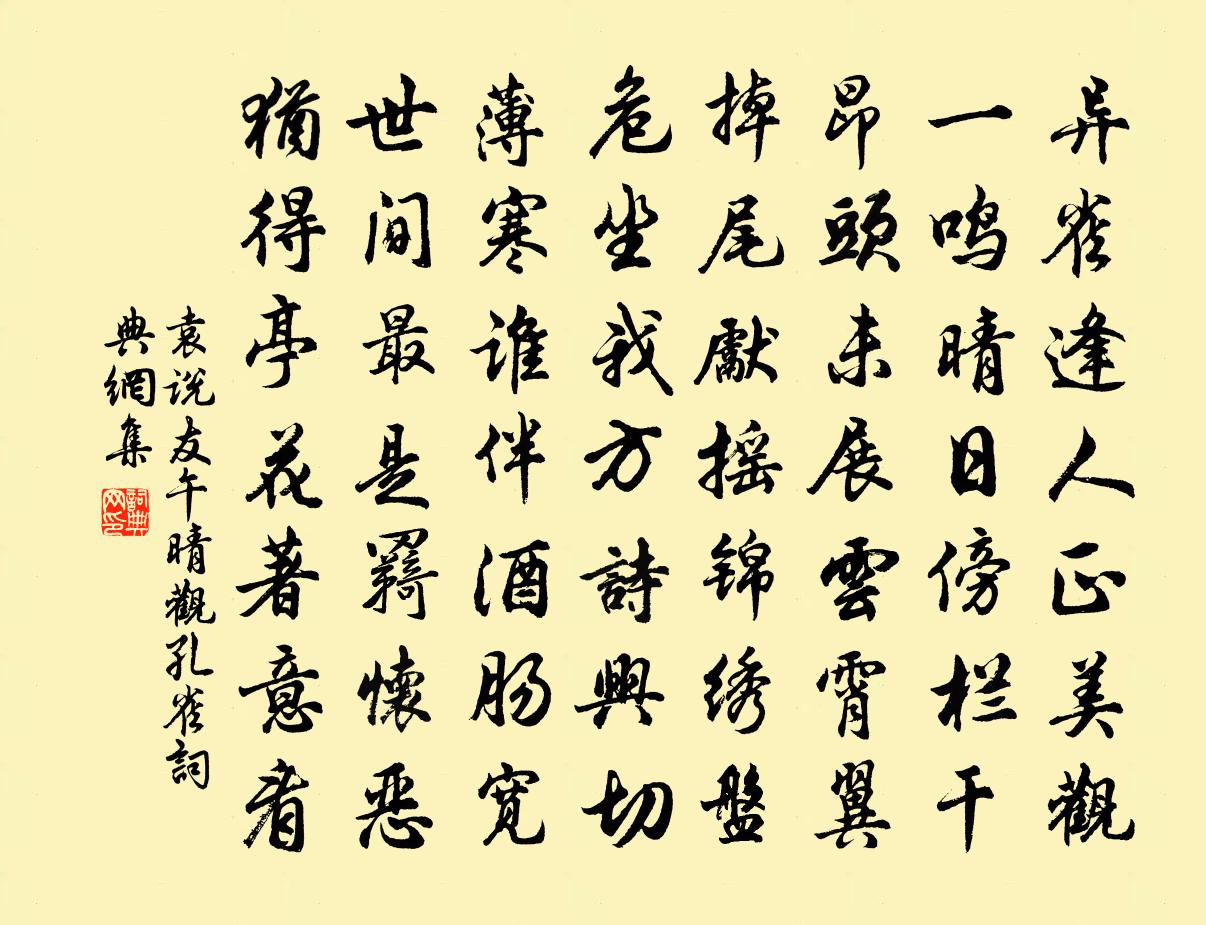 异雀逢人正美觀
一鸣晴日傍栏干
昂頭未展雲霄翼
掉尾獻摇锦绣盤
危坐我方詩興切
薄寒谁伴酒肠宽
世间最是羇懷恶
猶得亭花著意看
袁说友午晴觀孔雀詞
典網集
詞典
网印